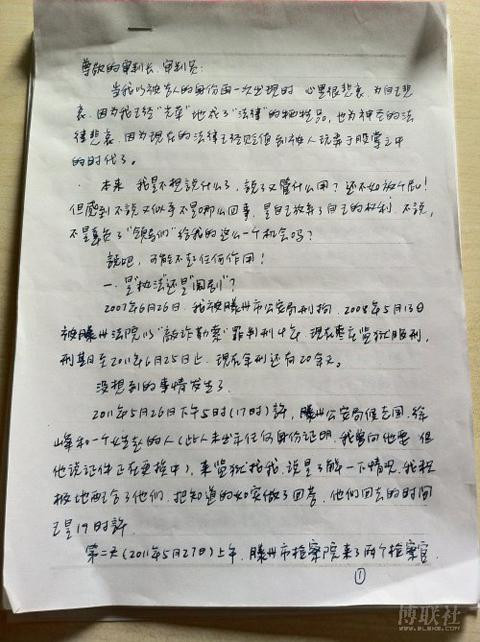 尊敬的审判长、审判员:
当我以被告人的身份再一次出现时 心里很悲哀,为自己悲
哀,因为我已经"光荣"地成了"法律"的牺牲品,也为神圣的法
律悲哀,因为现在的法律已经贬值到被人玩弄于股掌之中
的时代了。
本来 我是不想说什么了,说了又管什么用?还不如放个屁!
但感到不说又似乎不是那么回事,是自己放弃了自己的权利,不说,
不是辜负了"领导们"给我的这么一个机会吗?
说吧,可能不起任何作用!
一.是"执法"还是"国割"?
2007年6月26日 我被滕州市公安局刑拘,2008年5月13日
被滕州法院以"敲诈勒索"罪判刑4年 现在枣庄监狱服刑,
刑期至2011年6月25日止.现在余刑还有20余天。
没想到的事情发生了.
2011年5月26日下午5时(17时)許,滕州公安局侯志国、徐
峰和一个生彭的人(此人未出示任何身份证明,我曾向他要 但
他说证件正在更换中),来监狱找我,说是了解一下情况,我积
极地配合了他们,把知道的如实做了回答,他们回去的时间
已是19时許
第二天(2011年5月27日)上午,滕州市检察院来了两个检察官
①
博联社